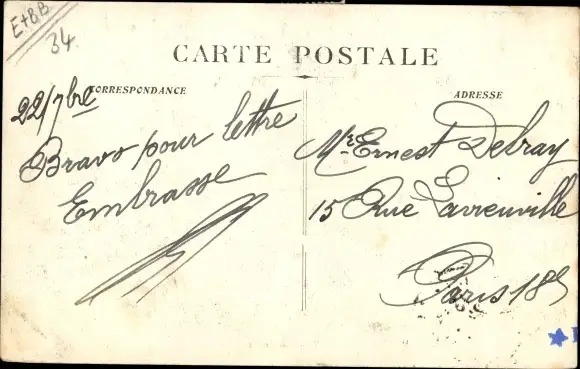 E+BB
34
CARTE POSTALE
CORRESPONDANCE
22/7bre
Bravo pour lettre
Embrasse
ADRESSE
Mr Ernest Debray
15 Rue Lavieuville
Paris 18e